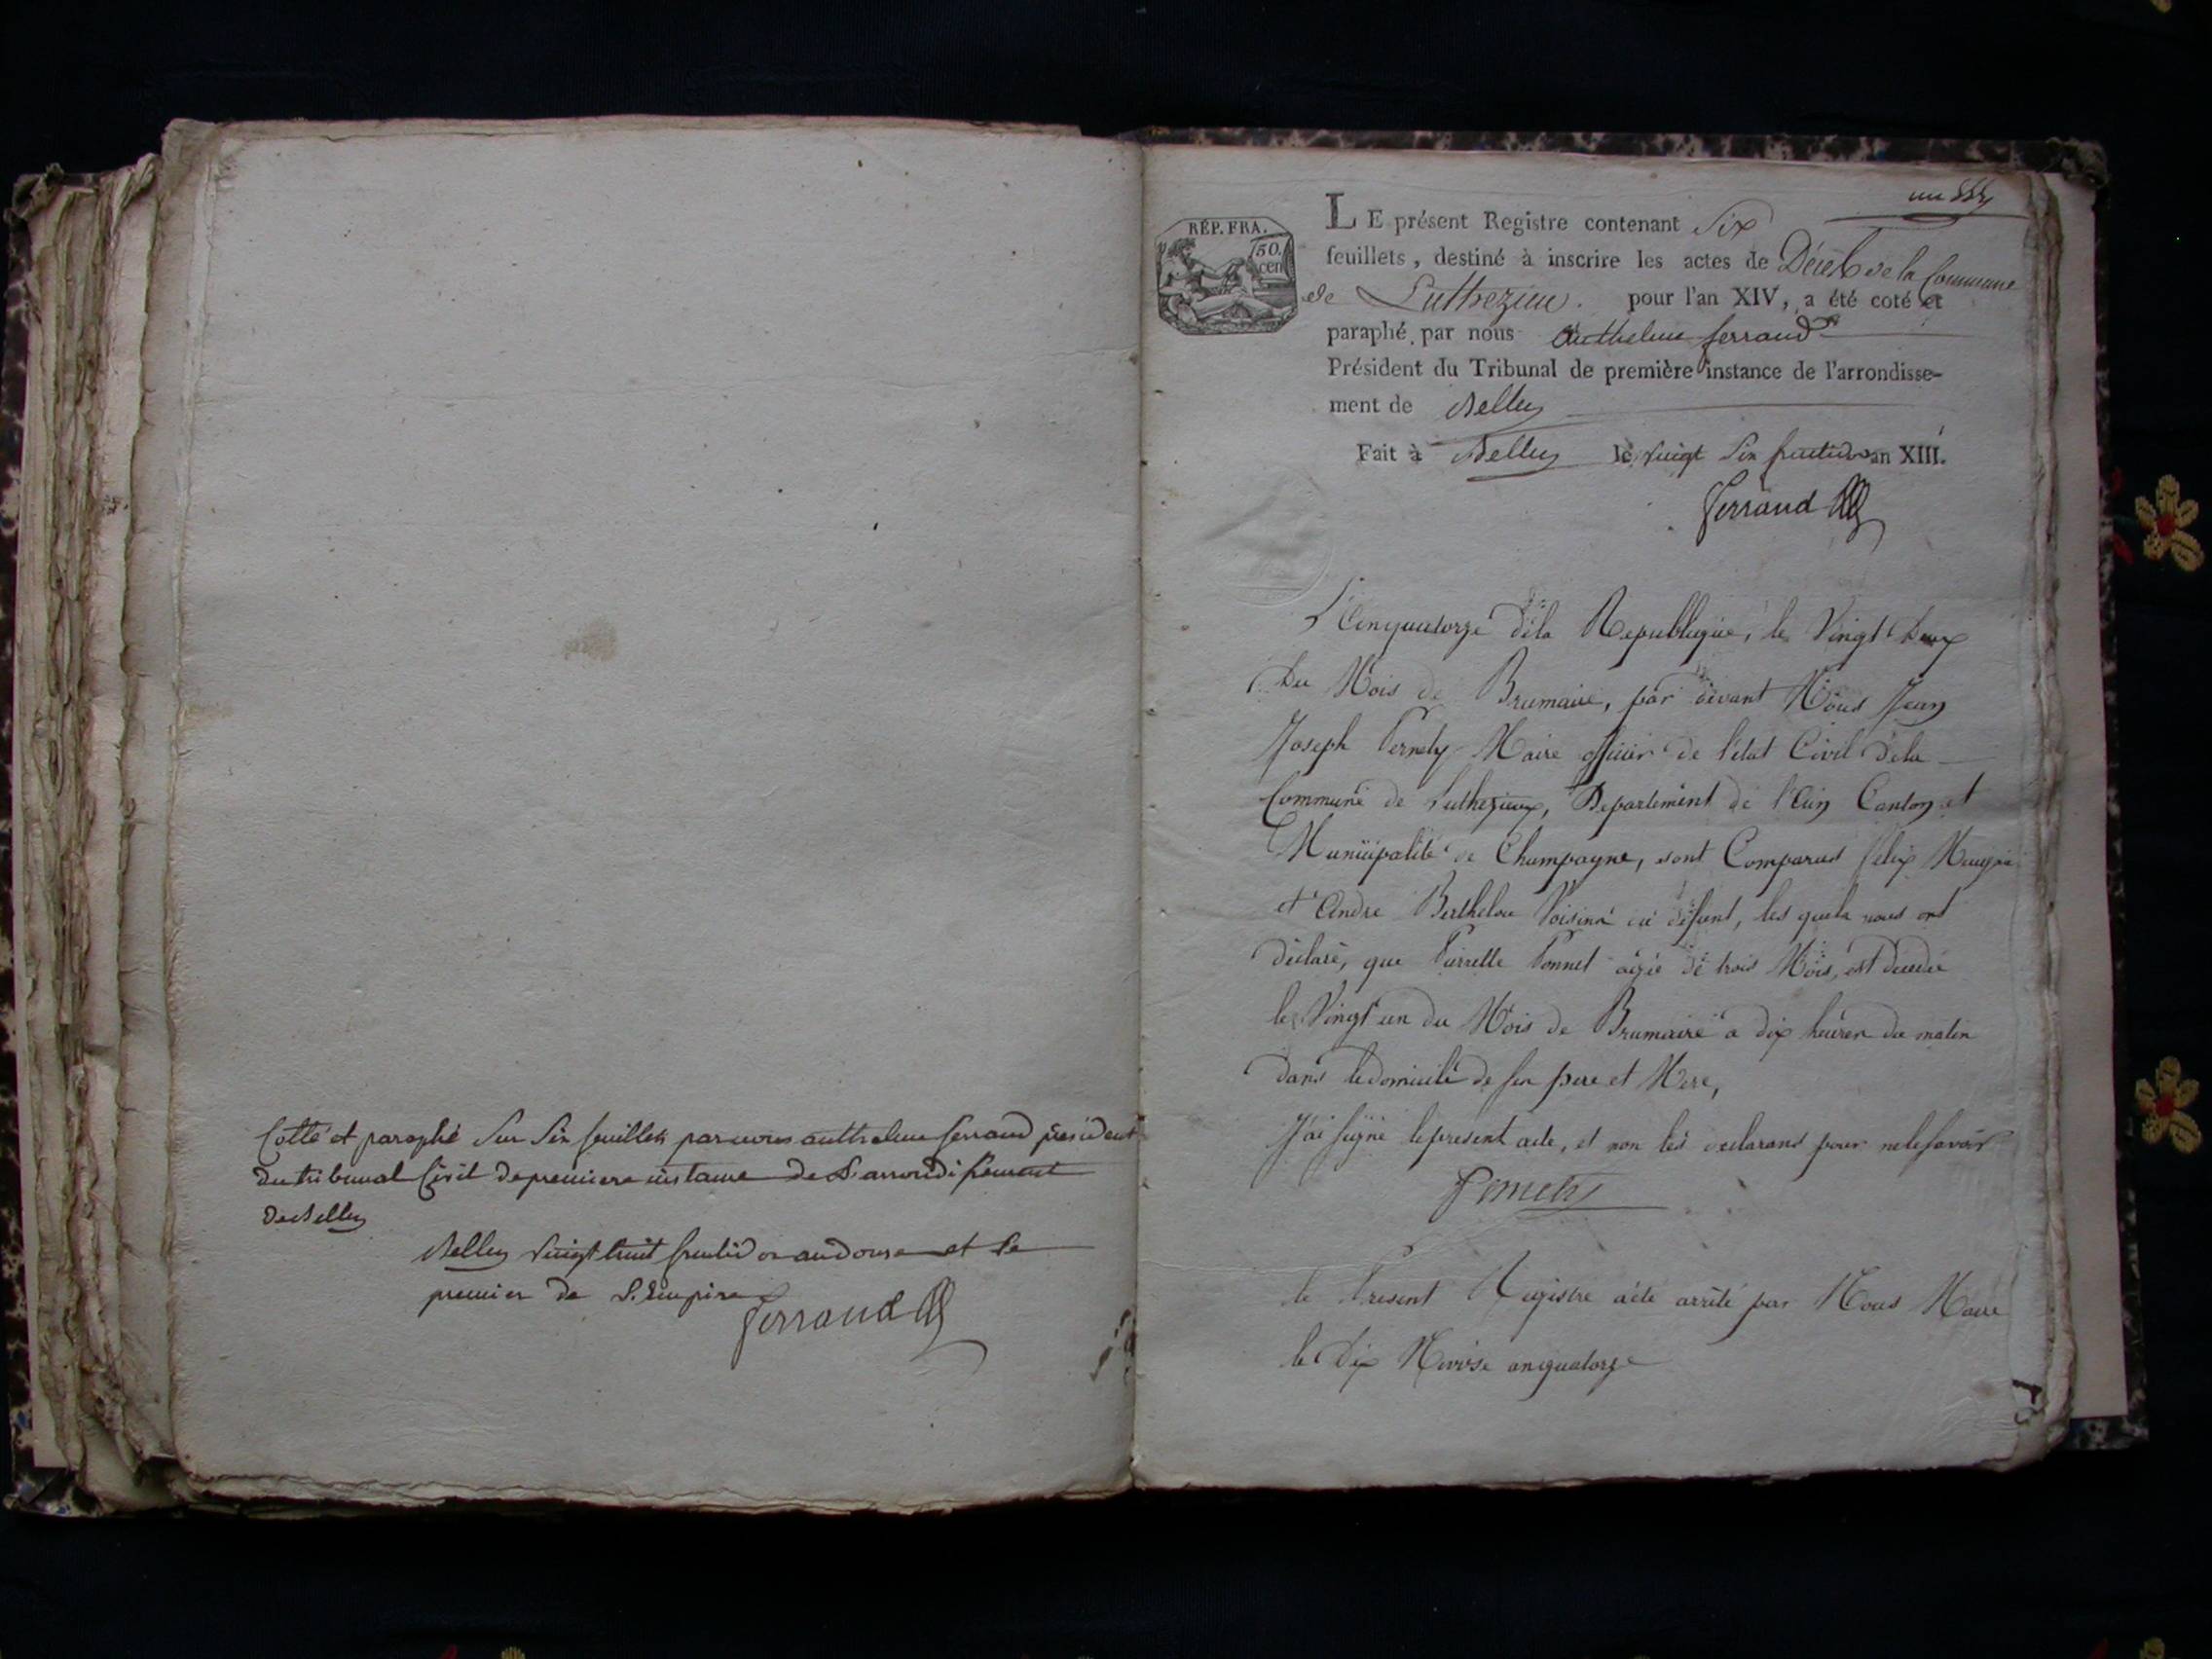 Cotté et paraphé Sur Six feuillets par nous anthelme ferrand président
du tribunal Civil de premiere instance de L'arrondissement
de Belley
Belley vingt huit fructidor an douze et le
premier de L'Empire
ferrand
un
RÉP. FRA.
50.
cen
LE présent Registre contenant Six
feuillets, destiné à inscrire les actes de Décès de la Commune
de Luthezieu. pour l'an XIV, a été coté et
paraphé par nous Anthelme ferrand
Président du Tribunal de première instance de l'arrondisse-
ment de Belley
Fait à Belley le vingt Six fructidor an XIII.
ferrand
L'Anquatorze dela Republique, le Vingt Deux
Du Mois de Brumaire, par devant Nous Jean
Joseph Pernety Maire officier de l'état Civil dela
Commune de Luthezieux, Departement de l'Ain Canton et
Municipalité de Champagne, sont Comparus félix
et André Berthelon Voisins du défunt, les quels nous ont
déclaré, que Pierrette Ponnet agée de trois Mois, est décedée
le Vingt un du Mois de Brumaire a dix heures du matin
dans le domicile de ses pere et Mere,
J'ai signé le present acte, et non les déclarans pour ne le savoir
Pernety
le Present Registre a été arrêté par Nous Maire
le Dix Nivose an quatorze